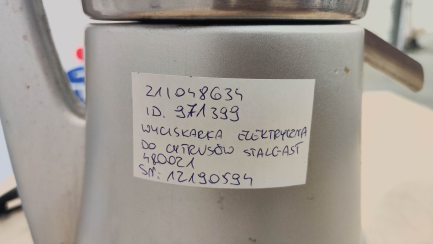 211048634
ID. 971399
WYCISKARKA ELEKTRYCZNA
DO CYTRUSÓW STALGAST
480021
SN: 12190594